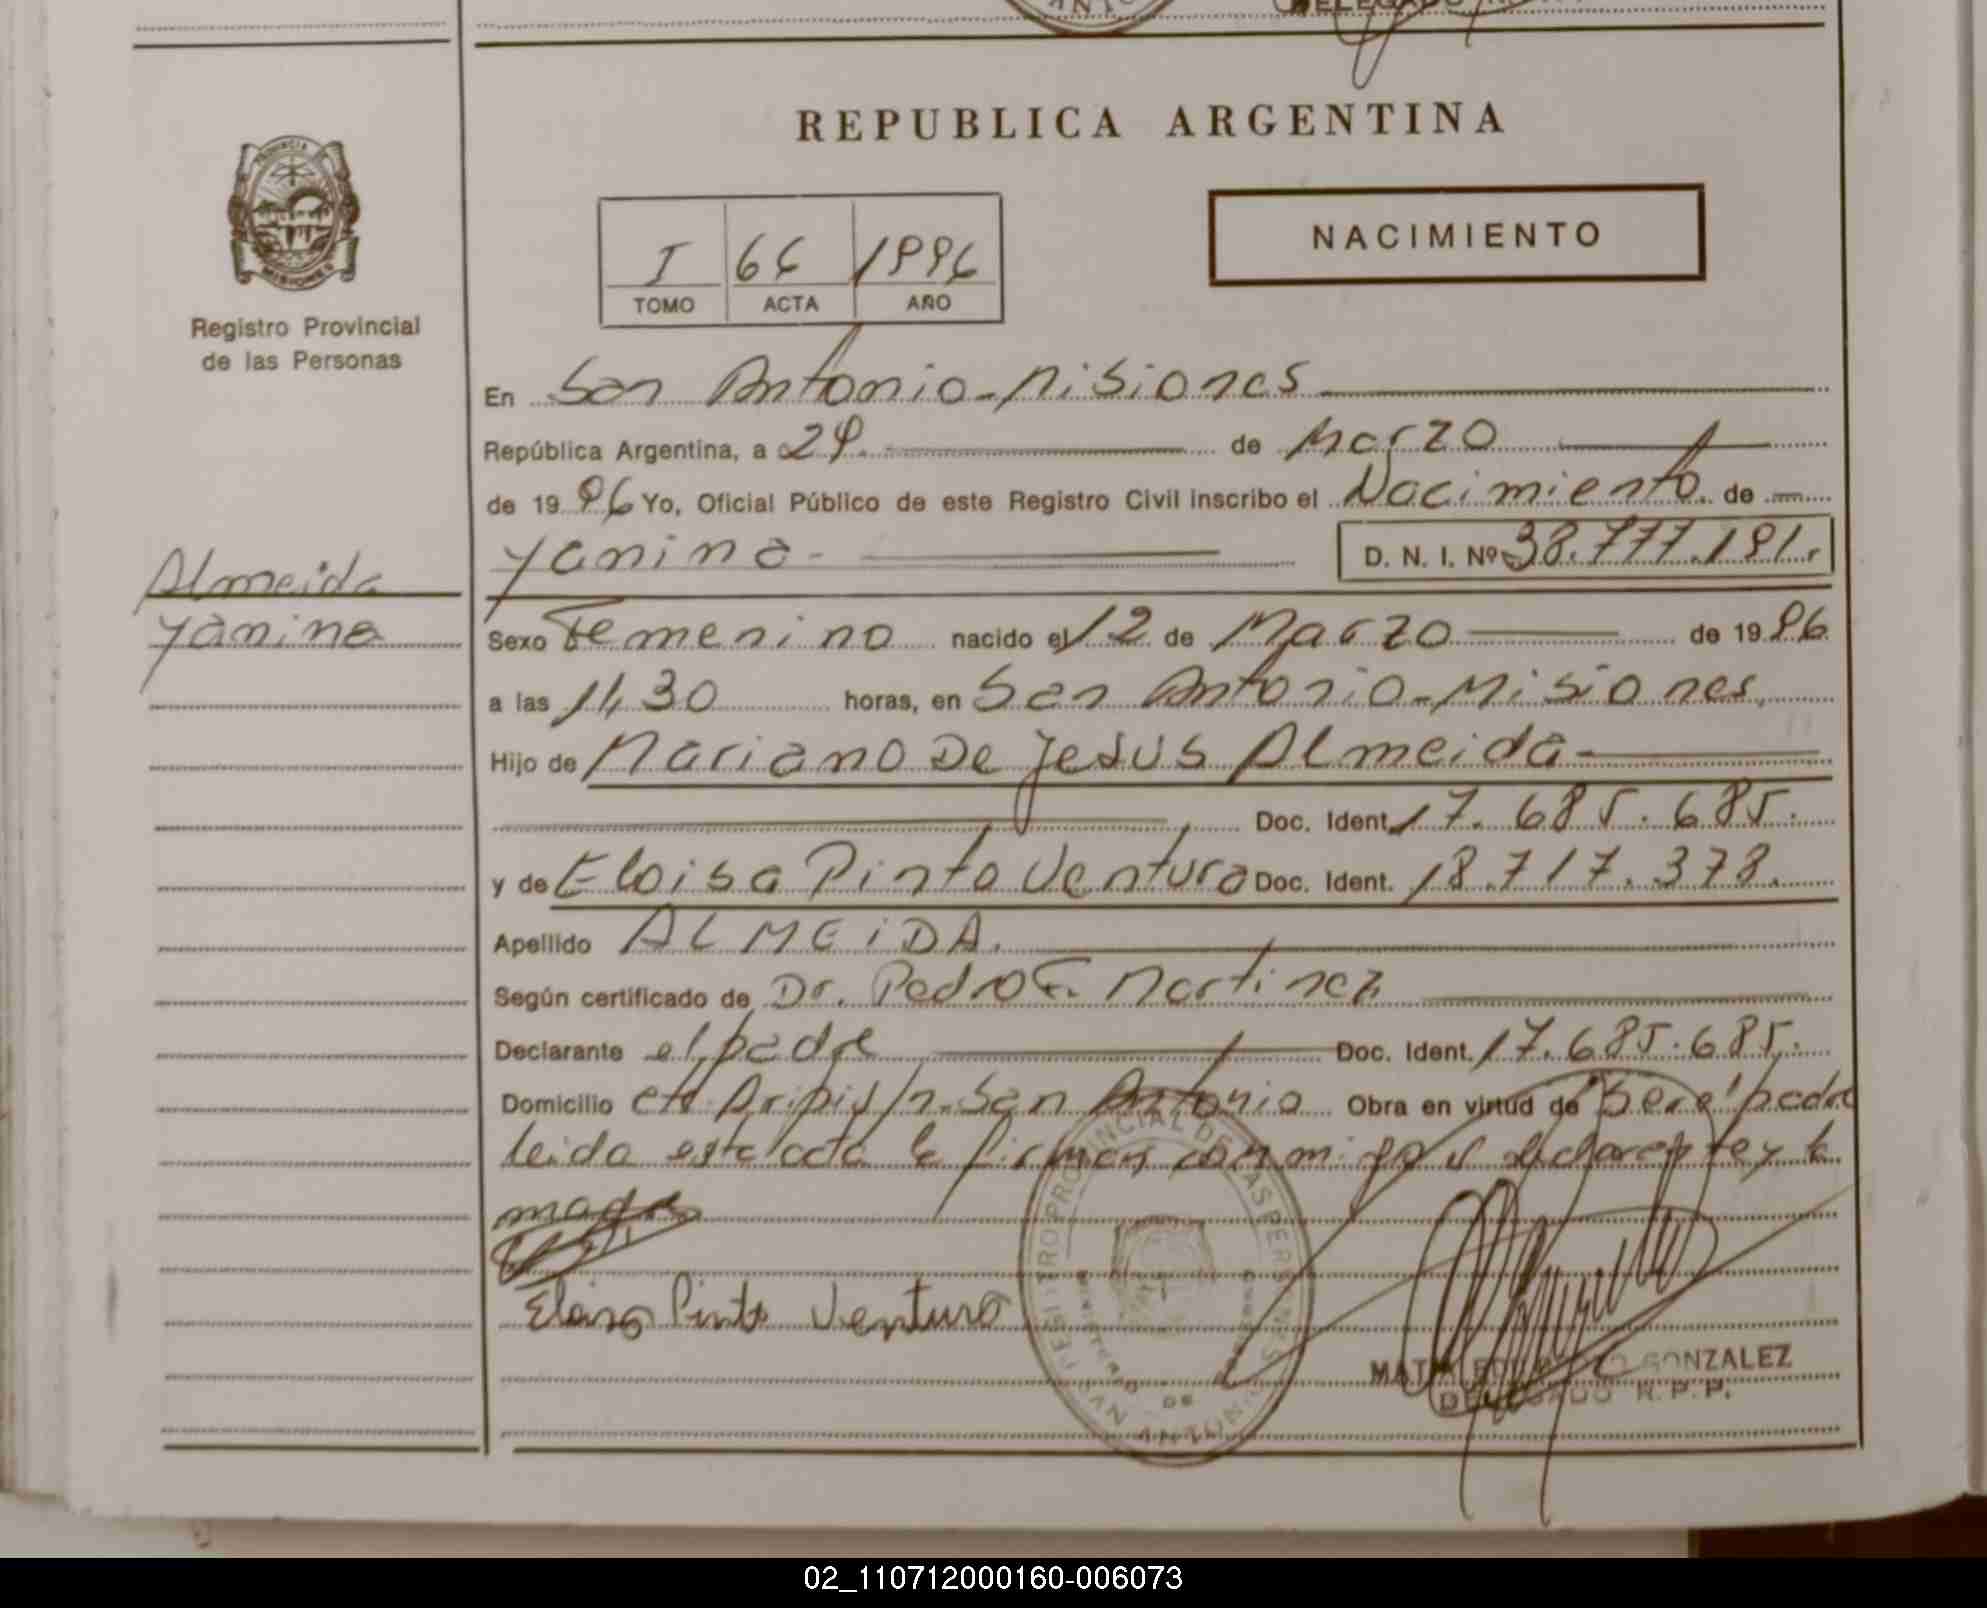 REPUBLICA ARGENTINA
PROVINCIA DE
MISIONES
Registro Provincial
de las Personas
I 66 1996
TOMO ACTA AÑO
NACIMIENTO
En San Antonio - Misiones
República Argentina, a 29 de Marzo
de 1996 Yo, Oficial Público de este Registro Civil inscribo el Nacimiento de
Yanina - D. N. I. Nº 38.777.191.
Almeida
Yanina
Sexo Femenino nacido el 12 de Marzo de 1996
a las 11,30 horas, en San Antonio - Misiones,
Hijo de Mariano De Jesus Almeida
Doc. Ident. 17.685.685.
y de Eloisa Pinto Ventura Doc. Ident. 18.717.378.
Apellido ALMEIDA.
Según certificado de Dr. Pedro F. Martinez
Declarante el padre Doc. Ident. 17.685.685.
Domicilio s/n. San Antonio Obra en virtud de Ser el padre
leida esta acta la firman conmigo el declarante y la
madre
Eloisa Pinto Ventura
GONZALEZ
DELEGADO R.P.P.
02_110712000160-006073